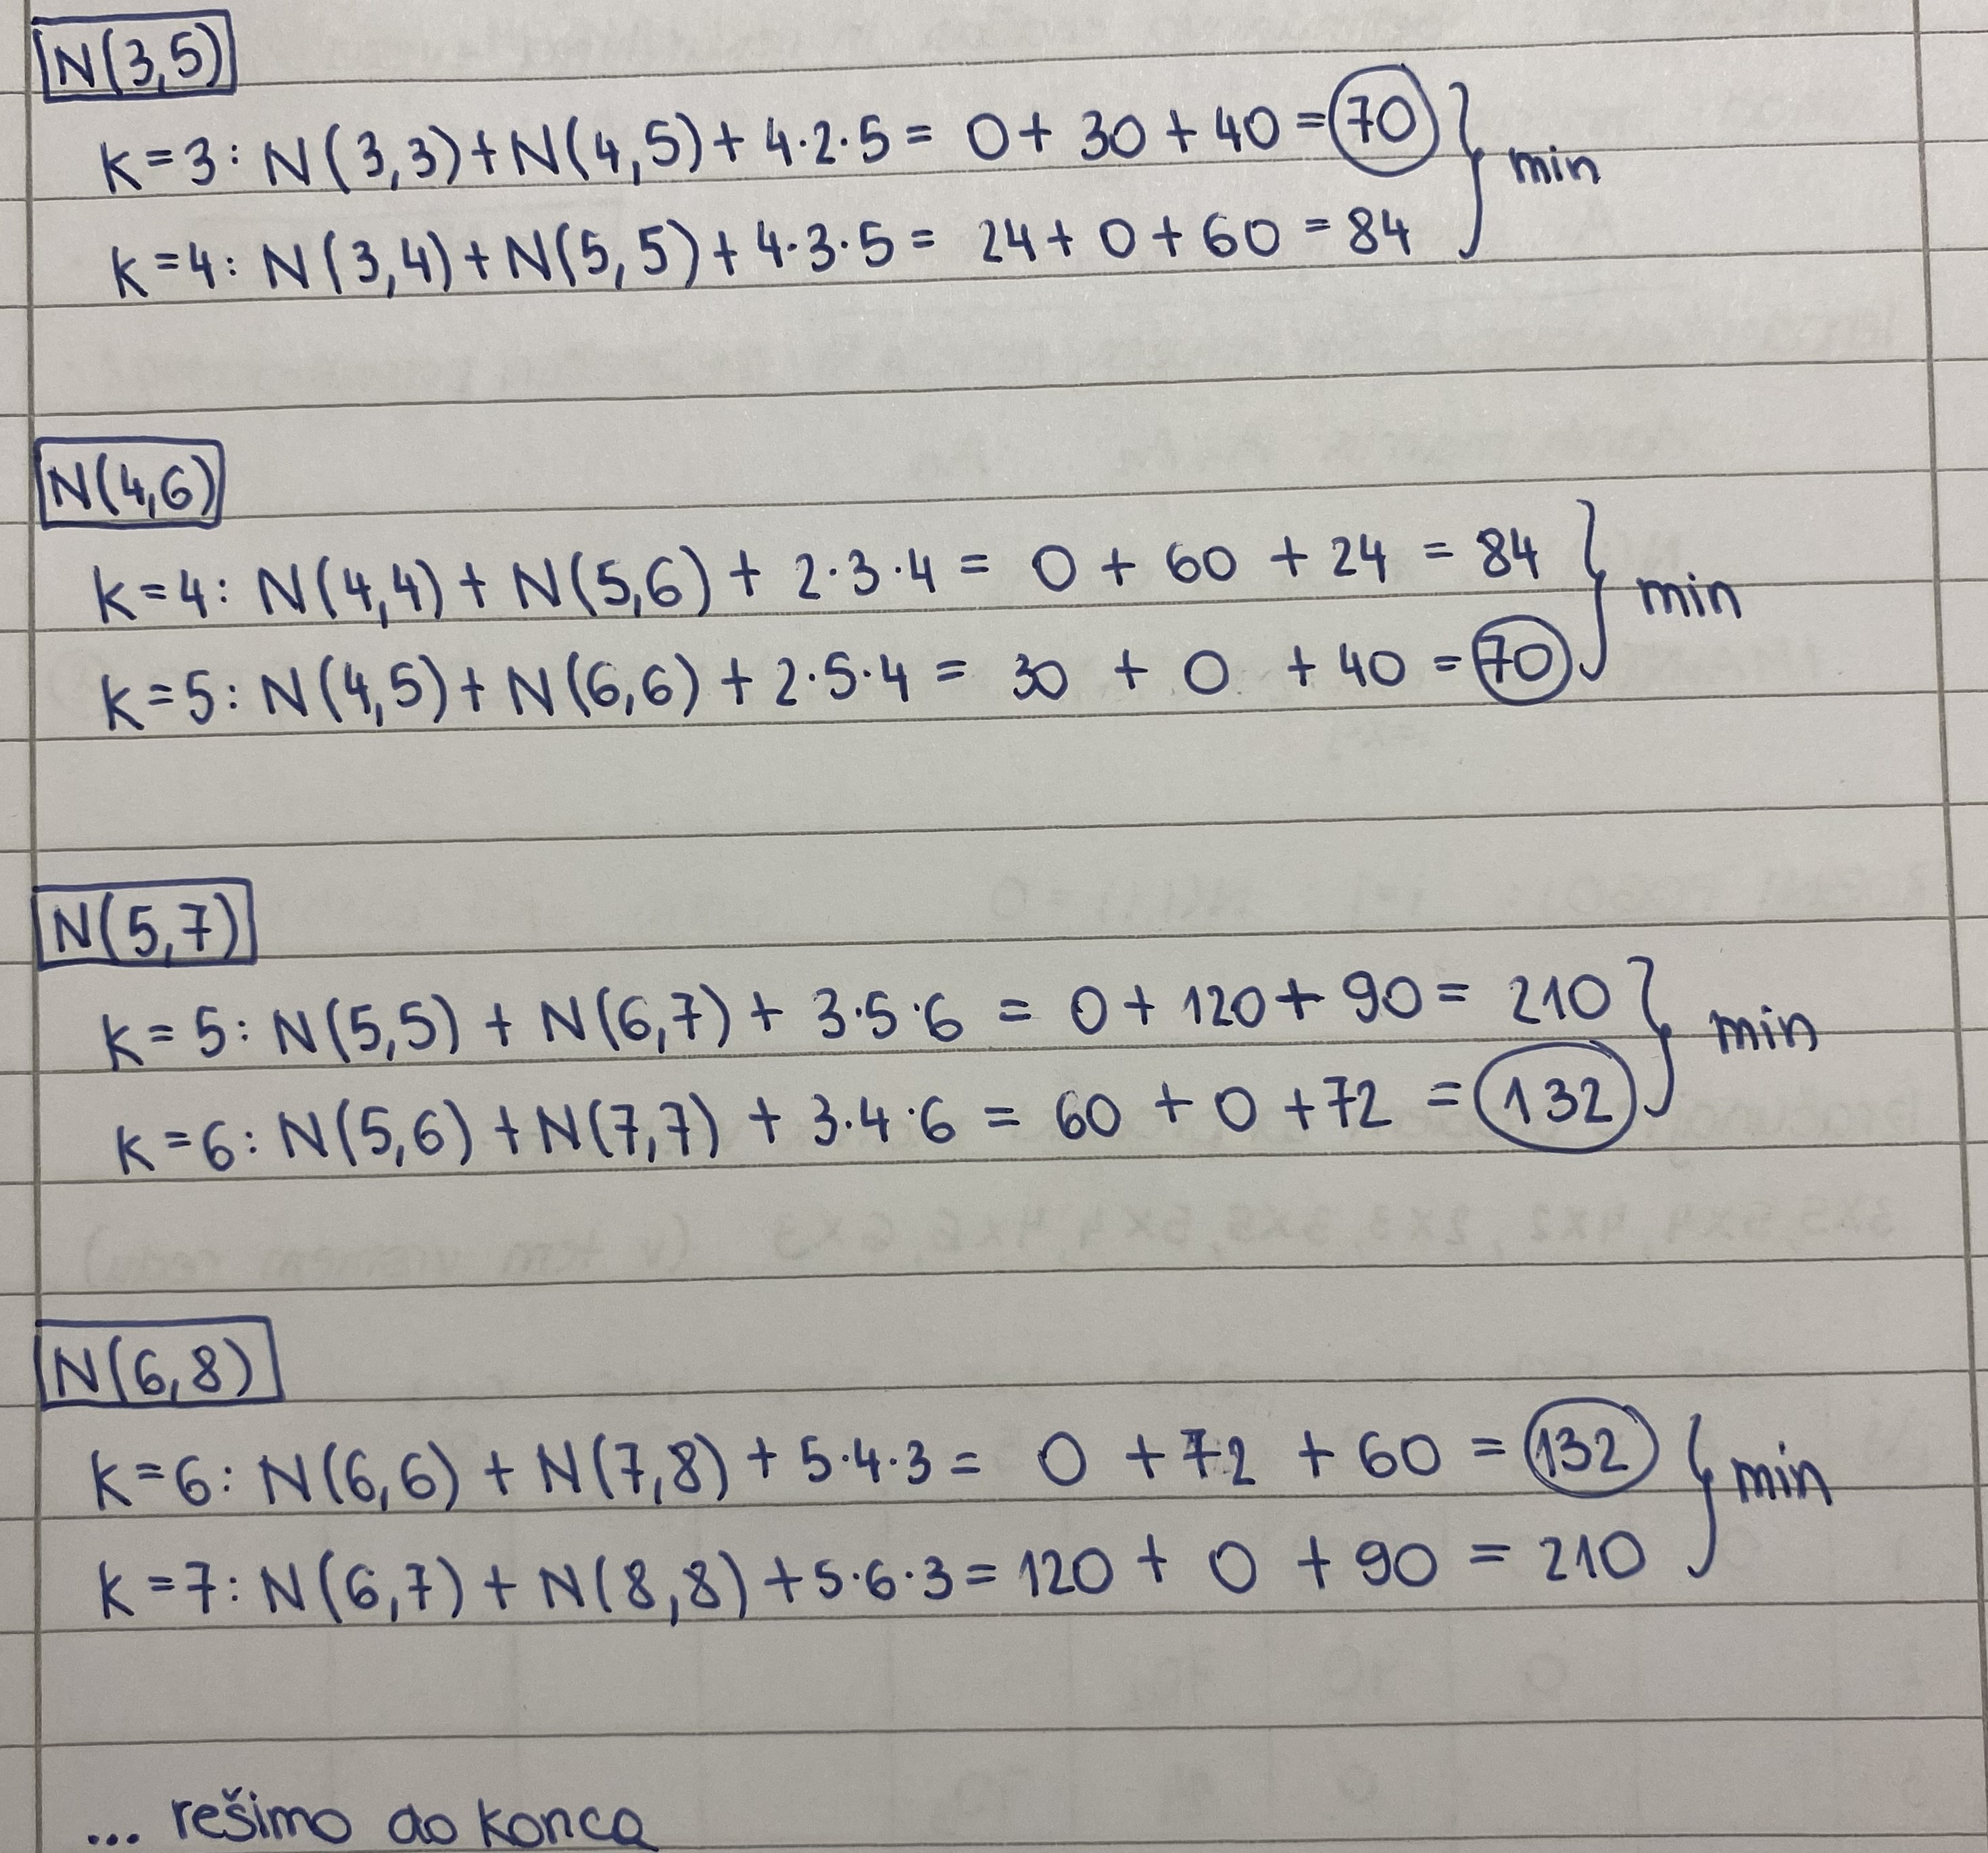 N(3,5)
K=3: N(3,3)+N(4,5)+4·2·5= 0+ 30 + 40 =70 } min
K=4: N(3,4)+N(5,5)+4·3·5= 24+ 0+60 =84
N(4,6)
K=4: N(4,4) + N(5,6) + 2·3·4 = 0 + 60 + 24 = 84 } min
K=5: N(4,5)+ N(6,6) + 2·5·4 = 30 + 0 + 40 =70
N(5,7)
K=5: N(5,5) + N(6,7) + 3·5·6 = 0+ 120+ 90= 210 } min
K=6: N(5,6) +N(7,7) + 3·4·6 = 60 + 0 +72 =132
N(6,8)
K=6: N(6,6) + N(7,8) + 5·4·3 = 0 + 72 + 60 = 132 } min
K=7: N(6,7) + N(8,8) +5·6·3= 120 + 0 + 90 = 210
... rešimo do konca